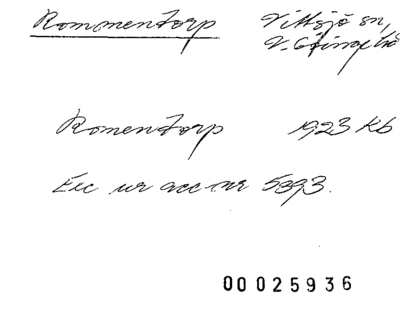 Rommentorp Vittsjö sn,
V. Göinge hd
Romentorp 1923 Kb
Exc ur acc nr 5393.
00025936